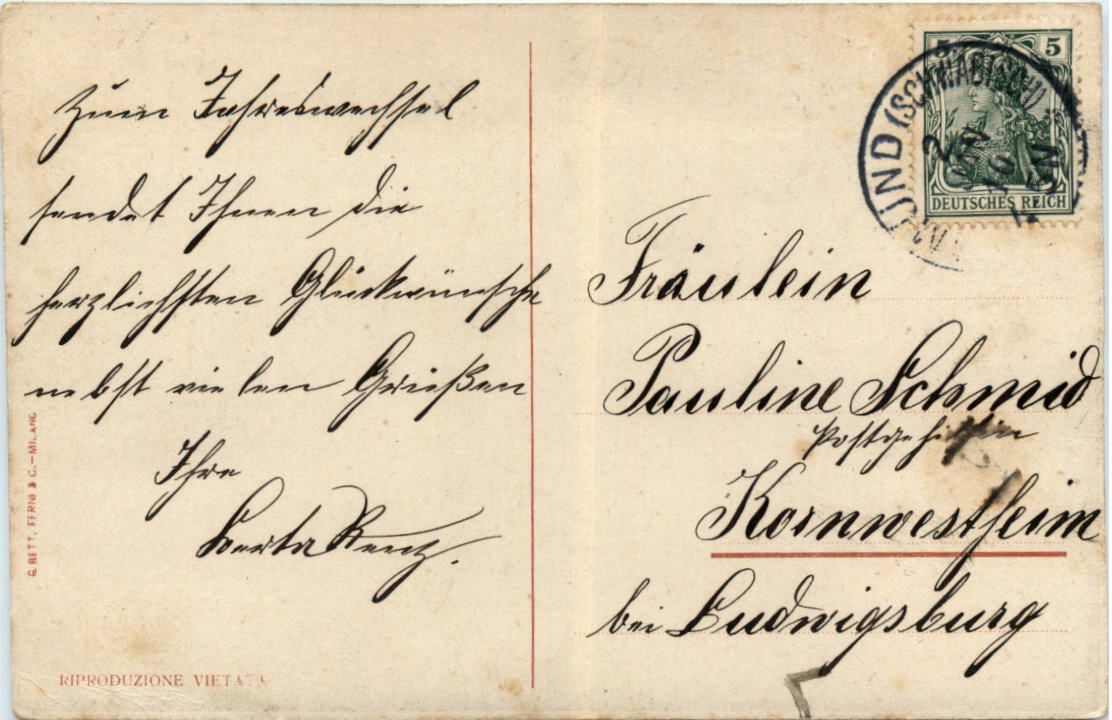 Zum Jahreswechsel
sendet Ihnen die
herzlichsten Glückwünsche
nebst vielen Grießen
Ihre
Berta Renz.
G. BETT. FERNI & C. - MILANO
RIPRODUZIONE VIETATA
5 5
GMÜND (SCHWÄBISCH)
2
JAN
10
DEUTSCHES REICH
Fräulein
Pauline Schmid
Postgehilfin
Kornwestheim
bei Ludwigsburg